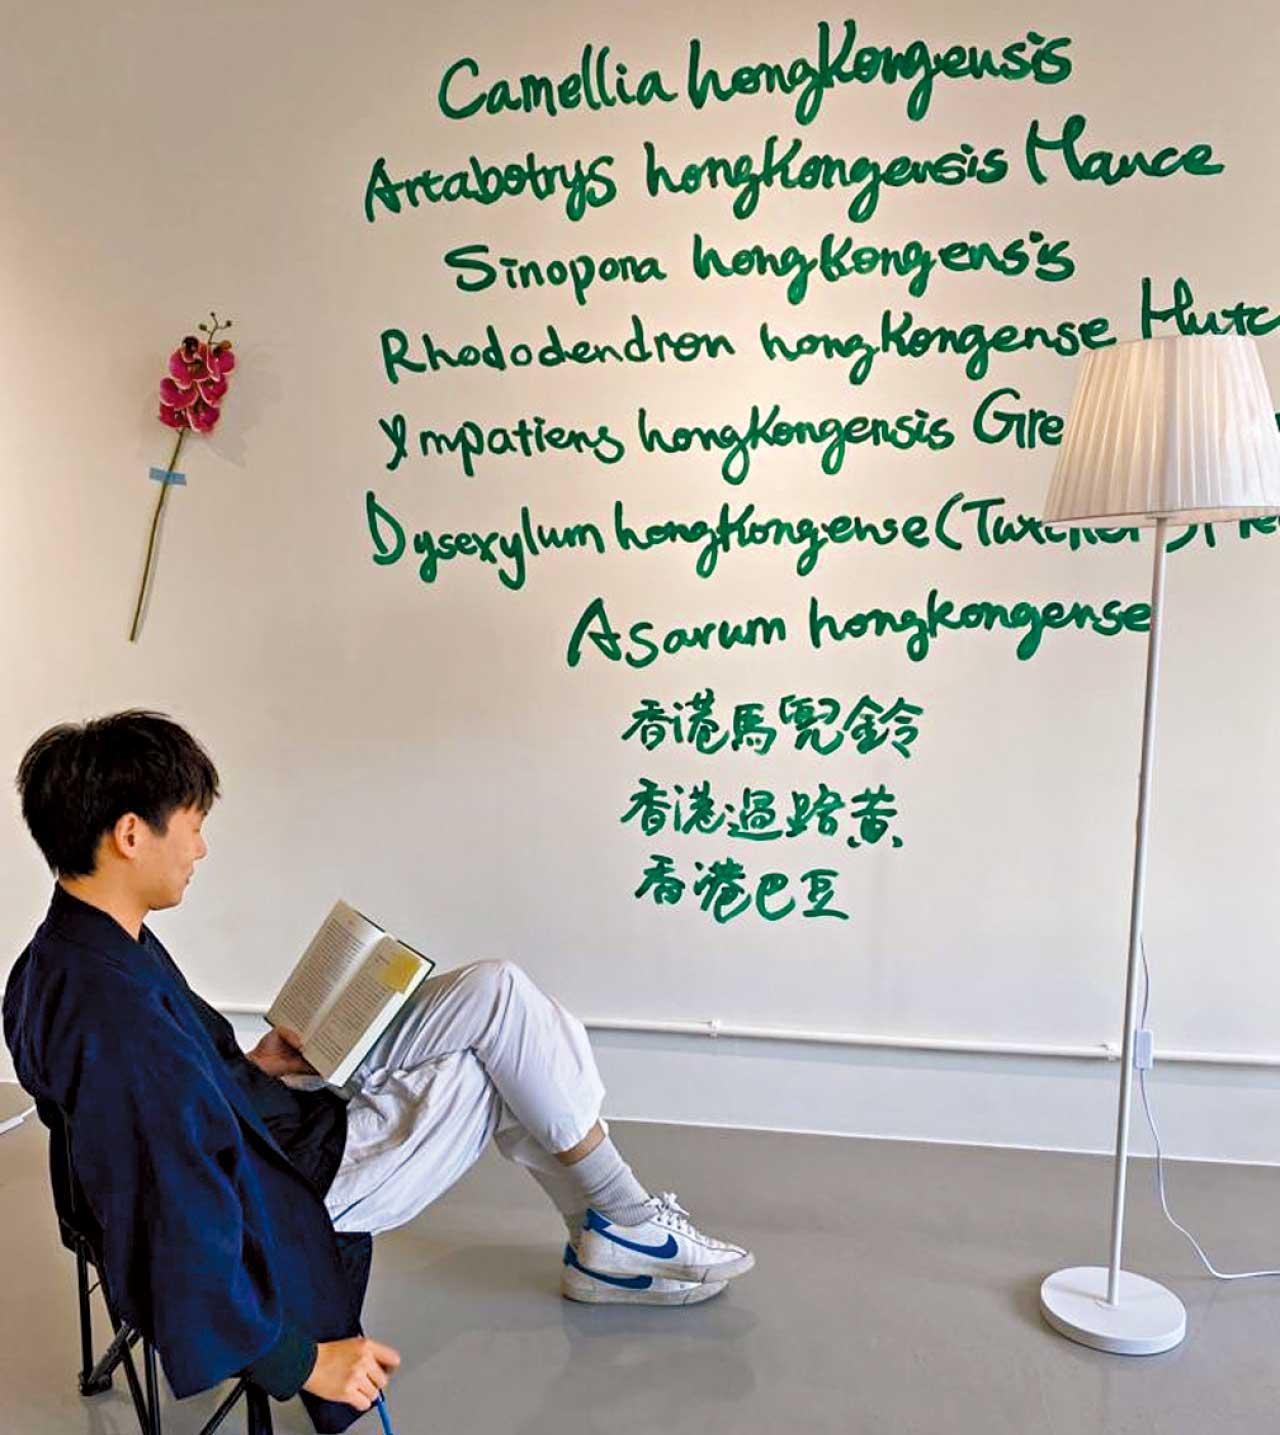 Camellia hongkongensis
Artabotrys hongkongensis Hance
Sinopora hongkongensis
Rhododendron hongkongense Hutc
Impatiens hongkongensis Gre
Dysexylum hongkongense (Tutcher)
Asarum hongkongense
香港馬兜鈴
香港過路黃
香港巴豆